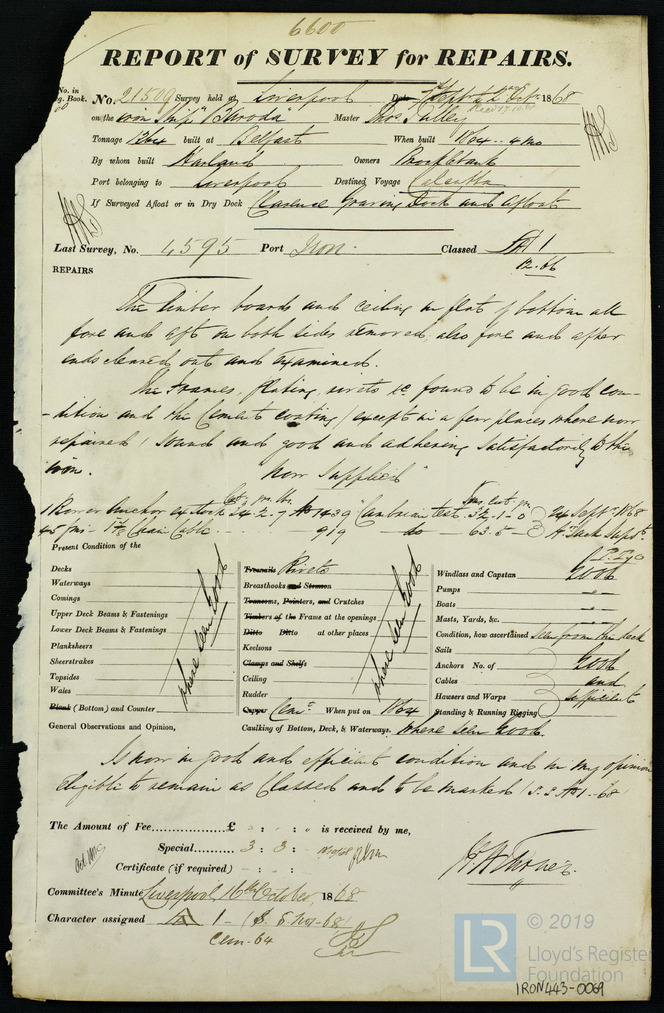 6600
REPORT of SURVEY for REPAIRS.
No. in
g. Book.
No. 21509 Survey held at Liverpool Date Sept 22 Oct 1868
on the iron Ship "Alwoda" Master Thos Tulley
Tonnage 1364 built at Belfast When built 1864 .. 4 mo
By whom built Harland Owners Brocklebank
Port belonging to Liverpool Destined Voyage Calcutta
If Surveyed Afloat or in Dry Dock Clarence Graving Dock and afloat
Last Survey, No. 4595 Port Iron Classed A 1
12.66
REPAIRS
The Limber boards and ceiling in flat of bottom all
fore and aft on both sides removed, also fore and after
ends cleaned out and examined.
The Frames, plating, rivets &c found to be in good con-
-dition and the Cement coating (except in a few places where now
repaired) sound and good and adhering satisfactorily to the
iron.
Now Supplied
1 Bower Anchor ex stock 24-2-7 No 1439 test 32-1-0 24 Sept 1868
45 fms 1 7/8 Chain Cable 919 do 63.5
Present Condition of the
Decks
Waterways
Comings
Upper Deck Beams & Fastenings
Lower Deck Beams & Fastenings
Planksheers
Sheerstrakes
Topsides
Wales
Plank (Bottom) and Counter
where seen Good
Treenails Rivets
Breasthooks and Stemson
Transoms, Pointers, and Crutches
Timbers of the Frame at the openings
Ditto Ditto at other places
Keelsons
Clamps and Shelfs
Ceiling
Rudder
Copper Cemt When put on 1864
where seen Good
Windlass and Capstan Good
Pumps "
Boats "
Masts, Yards, &c. "
Condition, how ascertained Seen from the deck
Sails
Anchors No. of Good
Cables and
Hausers and Warps sufficient
Standing & Running Rigging
General Observations and Opinion, Caulking of Bottom, Deck, & Waterways. Where seen Good.
Is now in good and efficient condition and in my opinion
eligible to remain as Classed and to be marked S.S. No 1-68
The Amount of Fee............... £ : : is received by me,
Special........ 3 : 3 :
Certificate (if required) - : :
Committee's Minute Liverpool, 16th October, 1868
Character assigned A 1 - (S.S. No 1-68)
Cem-64
LR
© 2019
Lloyd's Register
Foundation
IRON443-0069